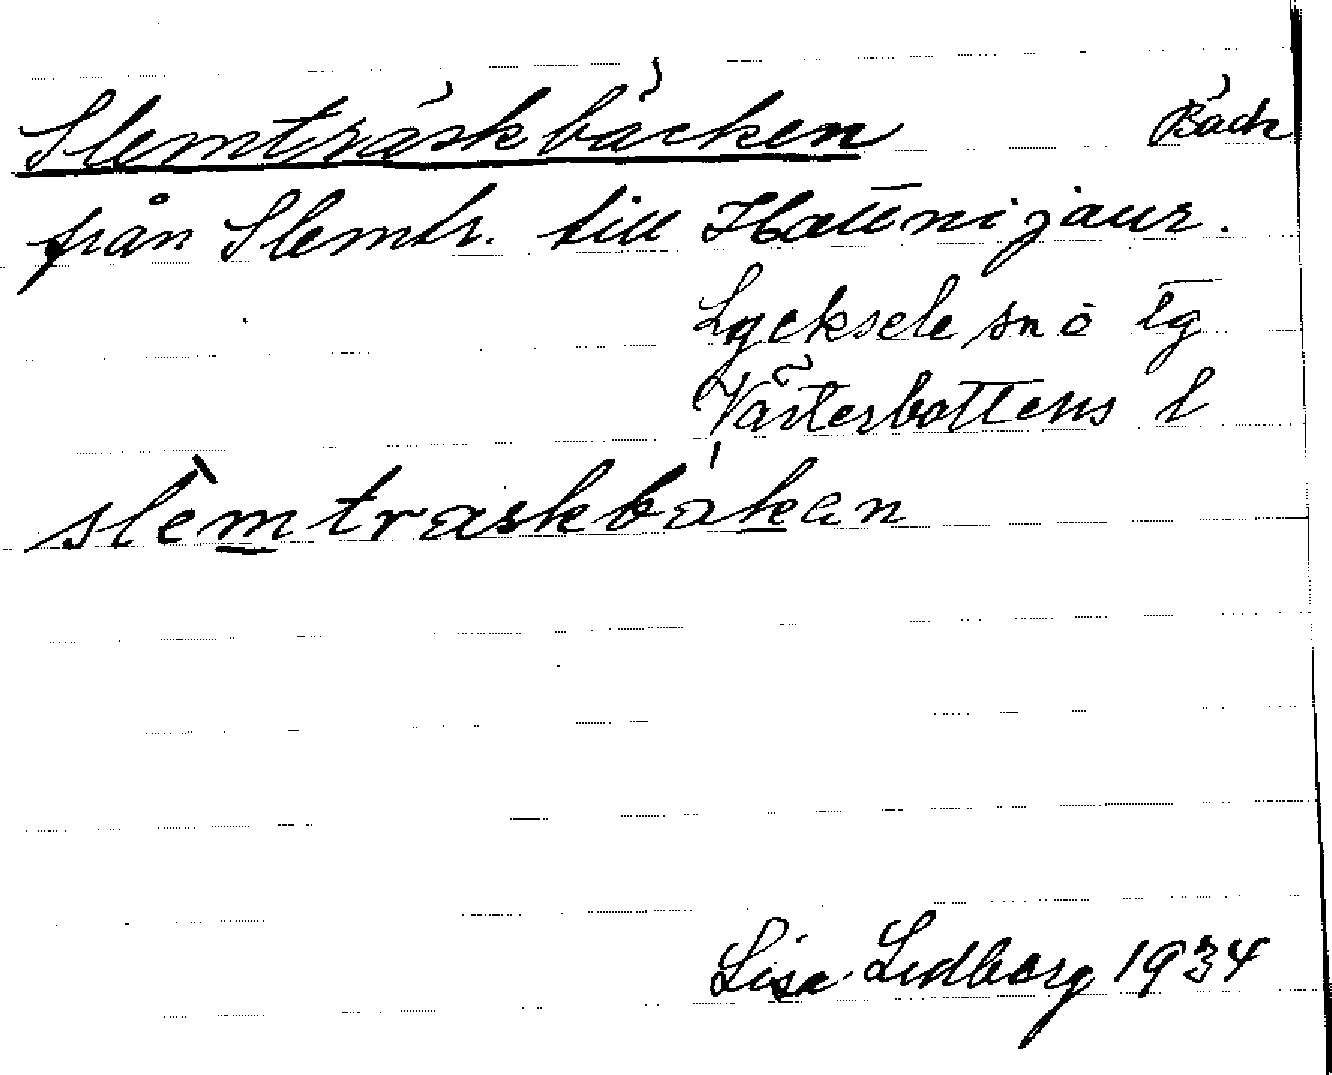 Slemträskbäcken Bäck
från Slemtr. till Hattnijaur.
Lycksele sn o tg
Västerbottens l
slèmtraskbákan
Lisa Lidberg 1934